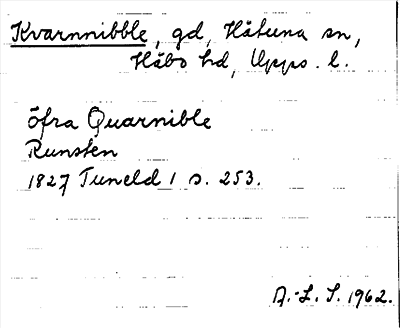 Kvarnnibble, gd, Håtuna sn,
Håbo hd, Upps. l.
öfra Quarnible
Runsten
1827 Tuneld 1 s. 253.
A.-L. S. 1962.